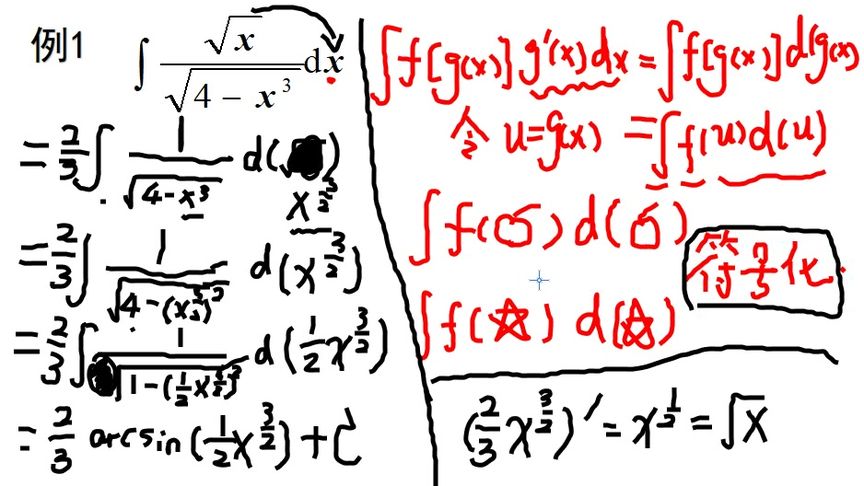 例1 ∫ √x / √(4 − x³) dx
= 2/3 ∫ 1 / √(4−x³) d(x^(3/2))
= 2/3 ∫ 1 / √(4−(x^(3/2))²) d(x^(3/2))
= 2/3 ∫ 1 / √(1−(1/2 x^(3/2))²) d(1/2 x^(3/2))
= 2/3 arcsin(1/2 x^(3/2)) + C
∫f[g(x)]g'(x)dx = ∫f[g(x)]d(g(x)
令 u=g(x) = ∫f(u)d(u)
∫f( )d( )
符号化
∫f(☆)d(☆)
(2/3 x^(3/2))′ = x^(1/2) = √x